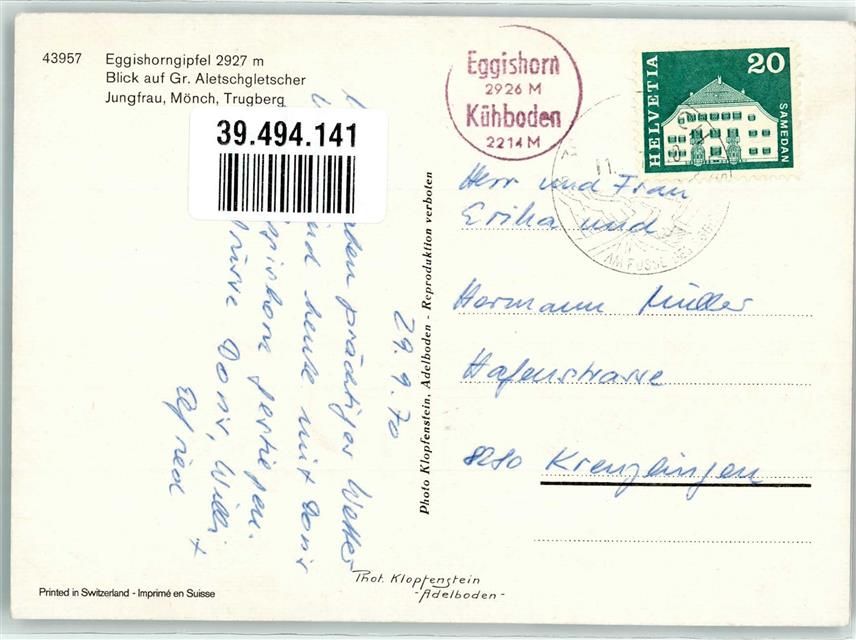 43957 Eggishorngipfel 2927 m
Blick auf Gr. Aletschgletscher
Jungfrau, Mönch, Trugberg
39.494.141
Eggishorn
2926 M
Kühboden
2214 M
HELVETIA
20
SAMEDAN
AM FUSSE DES
29. 9. 70
prächtiges Wetter
heute mit Doris
gestiegen.
Doris, Willi +
Elfried
Herr und Frau
Erika und
Hermann Müller
Hafenstrasse
8280 Kreuzlingen
Photo Klopfenstein, Adelboden - Reproduktion verboten
Phot. Klopfenstein
-Adelboden-
Printed in Switzerland - Imprimé en Suisse